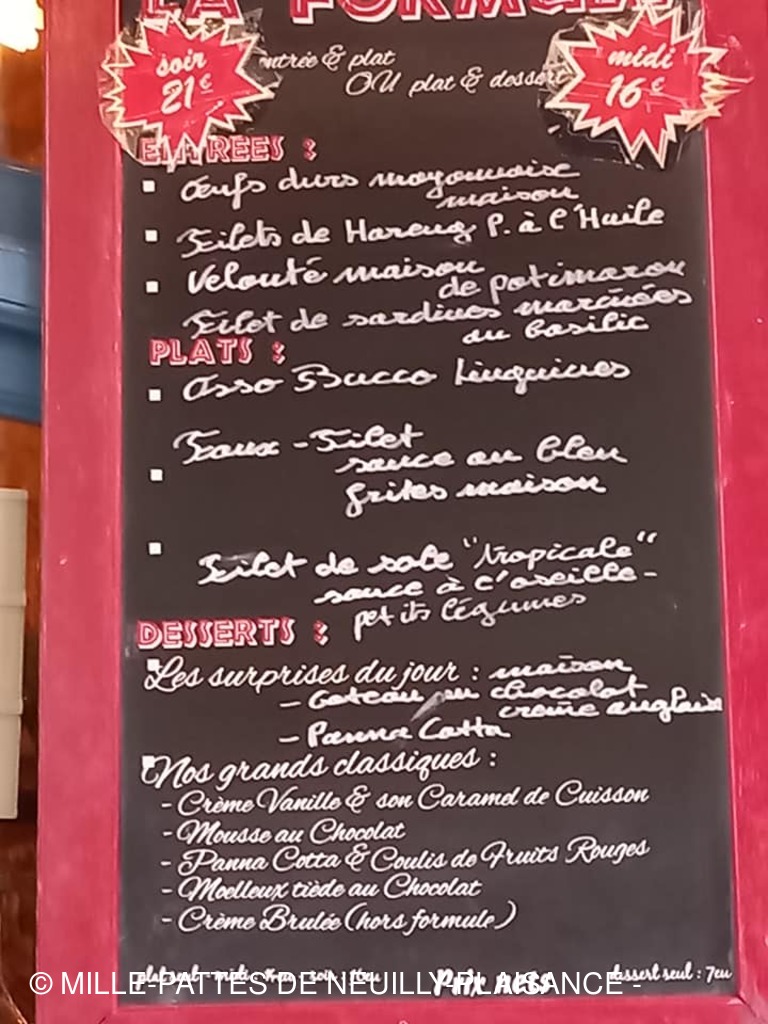 LA FORMULE
soir
21€
entrée & plat
OU plat & dessert
midi
16€
ENTRÉES :
Œufs durs mayonnaise
maison
Filets de Hareng P. à l'Huile
Velouté maison
de potimaron
Filet de sardines marinées
au basilic
PLATS :
Osso Bucco Linguines
Faux-Filet
sauce au bleu
frites maison
Filet de sole "tropicale"
sauce à l'oseille -
petits légumes
DESSERTS :
Les surprises du jour : maison
- Gateau au chocolat
creme anglaise
- Panna Cotta
Nos grands classiques :
- Crème Vanille & son Caramel de Cuisson
- Mousse au Chocolat
- Panna Cotta & Coulis de Fruits Rouges
- Moelleux tiède au Chocolat
- Crème Brulée (hors formule)
dessert seul : 7eu
© MILLE-PATTES DE NEUILLY PLAISANCE -